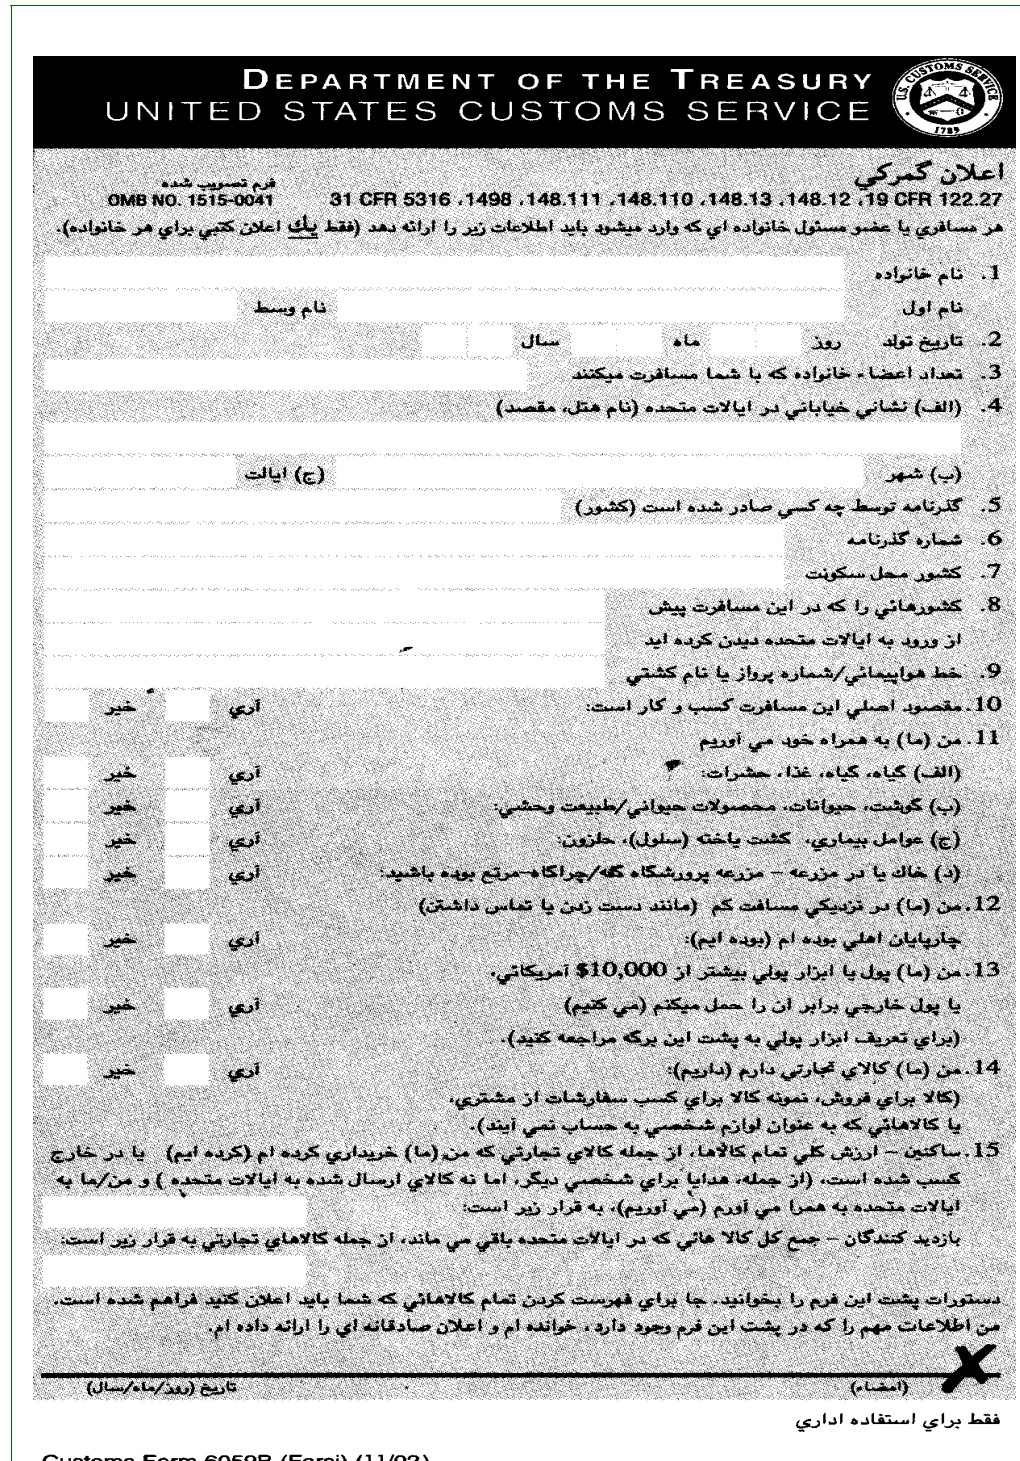 DEPARTMENT OF THE TREASURY
UNITED STATES CUSTOMS SERVICE
U.S. CUSTOMS SERVICE
1789
اعلان گمرکي
فرم تصويب شده
19 CFR 122.27، 148.12، 148.13، 148.110، 148.111، 1498، 31 CFR 5316
OMB NO. 1515-0041
هر مسافري يا عضو مسئول خانواده اي که وارد ميشود بايد اطلاعات زير را ارائه دهد (فقط يك اعلان کتبي براي هر خانواده).
1. نام خانواده
نام اول نام وسط
2. تاريخ تولد روز ماه سال
3. تعداد اعضاء خانواده که با شما مسافرت ميکنند
4. (الف) نشاني خياباني در ايالات متحده (نام هتل، مقصد)
(ب) شهر (ج) ايالت
5. گذرنامه توسط چه کسي صادر شده است (کشور)
6. شماره گذرنامه
7. کشور محل سکونت
8. کشورهائي را که در اين مسافرت پيش
از ورود به ايالات متحده ديدن کرده ايد
9. خط هواپيمائي/شماره پرواز يا نام کشتي
10. مقصود اصلي اين مسافرت کسب و کار است: آري خير
11. من (ما) به همراه خود مي آوريم
(الف) گياه، گياه، غذا، حشرات: آري خير
(ب) گوشت، حيوانات، محصولات حيواني/طبيعت وحشي: آري خير
(ج) عوامل بيماري، کشت ياخته (سلول)، حلزون: آري خير
(د) خاك يا در مزرعه – مزرعه پرورشگاه گله/چراگاه-مرتع بوده باشيد: آري خير
12. من (ما) در نزديکي مسافت کم (مانند دست زدن يا تماس داشتن)
چارپايان اهلي بوده ام (بوده ايم): آري خير
13. من (ما) پول يا ابزار پولي بيشتر از $10,000 آمريکائي،
يا پول خارجي برابر آن را حمل ميکنم (مي کنيم) آري خير
(براي تعريف ابزار پولي به پشت اين برگه مراجعه کنيد).
14. من (ما) کالاي تجارتي دارم (داريم): آري خير
(کالا براي فروش، نمونه کالا براي کسب سفارشات از مشتري،
يا کالاهائي که به عنوان لوازم شخصي به حساب نمي آيند).
15. ساکنين – ارزش کلي تمام کالاها، از جمله کالاي تجارتي که من (ما) خريداري کرده ام (کرده ايم) يا در خارج
کسب شده است، (از جمله، هدايا براي شخصي ديگر، اما نه کالاي ارسال شده به ايالات متحده ) و من/ما به
ايالات متحده به همرا مي آورم (مي آوريم)، به قرار زير است:
بازديد کنندگان – جمع کل کالا هائي که در ايالات متحده باقي مي ماند، از جمله کالاهاي تجارتي به قرار زير است:
دستورات پشت اين فرم را بخوانيد. جا براي فهرست کردن تمام کالاهائي که شما بايد اعلان کنيد فراهم شده است.
من اطلاعات مهم را که در پشت اين فرم وجود دارد، خوانده ام و اعلان صادقانه اي را ارائه داده ام.
X
(امضاء) تاريخ (روز/ماه/سال)
فقط براي استفاده اداري
Customs Form 6059B (Farsi) (11/02)